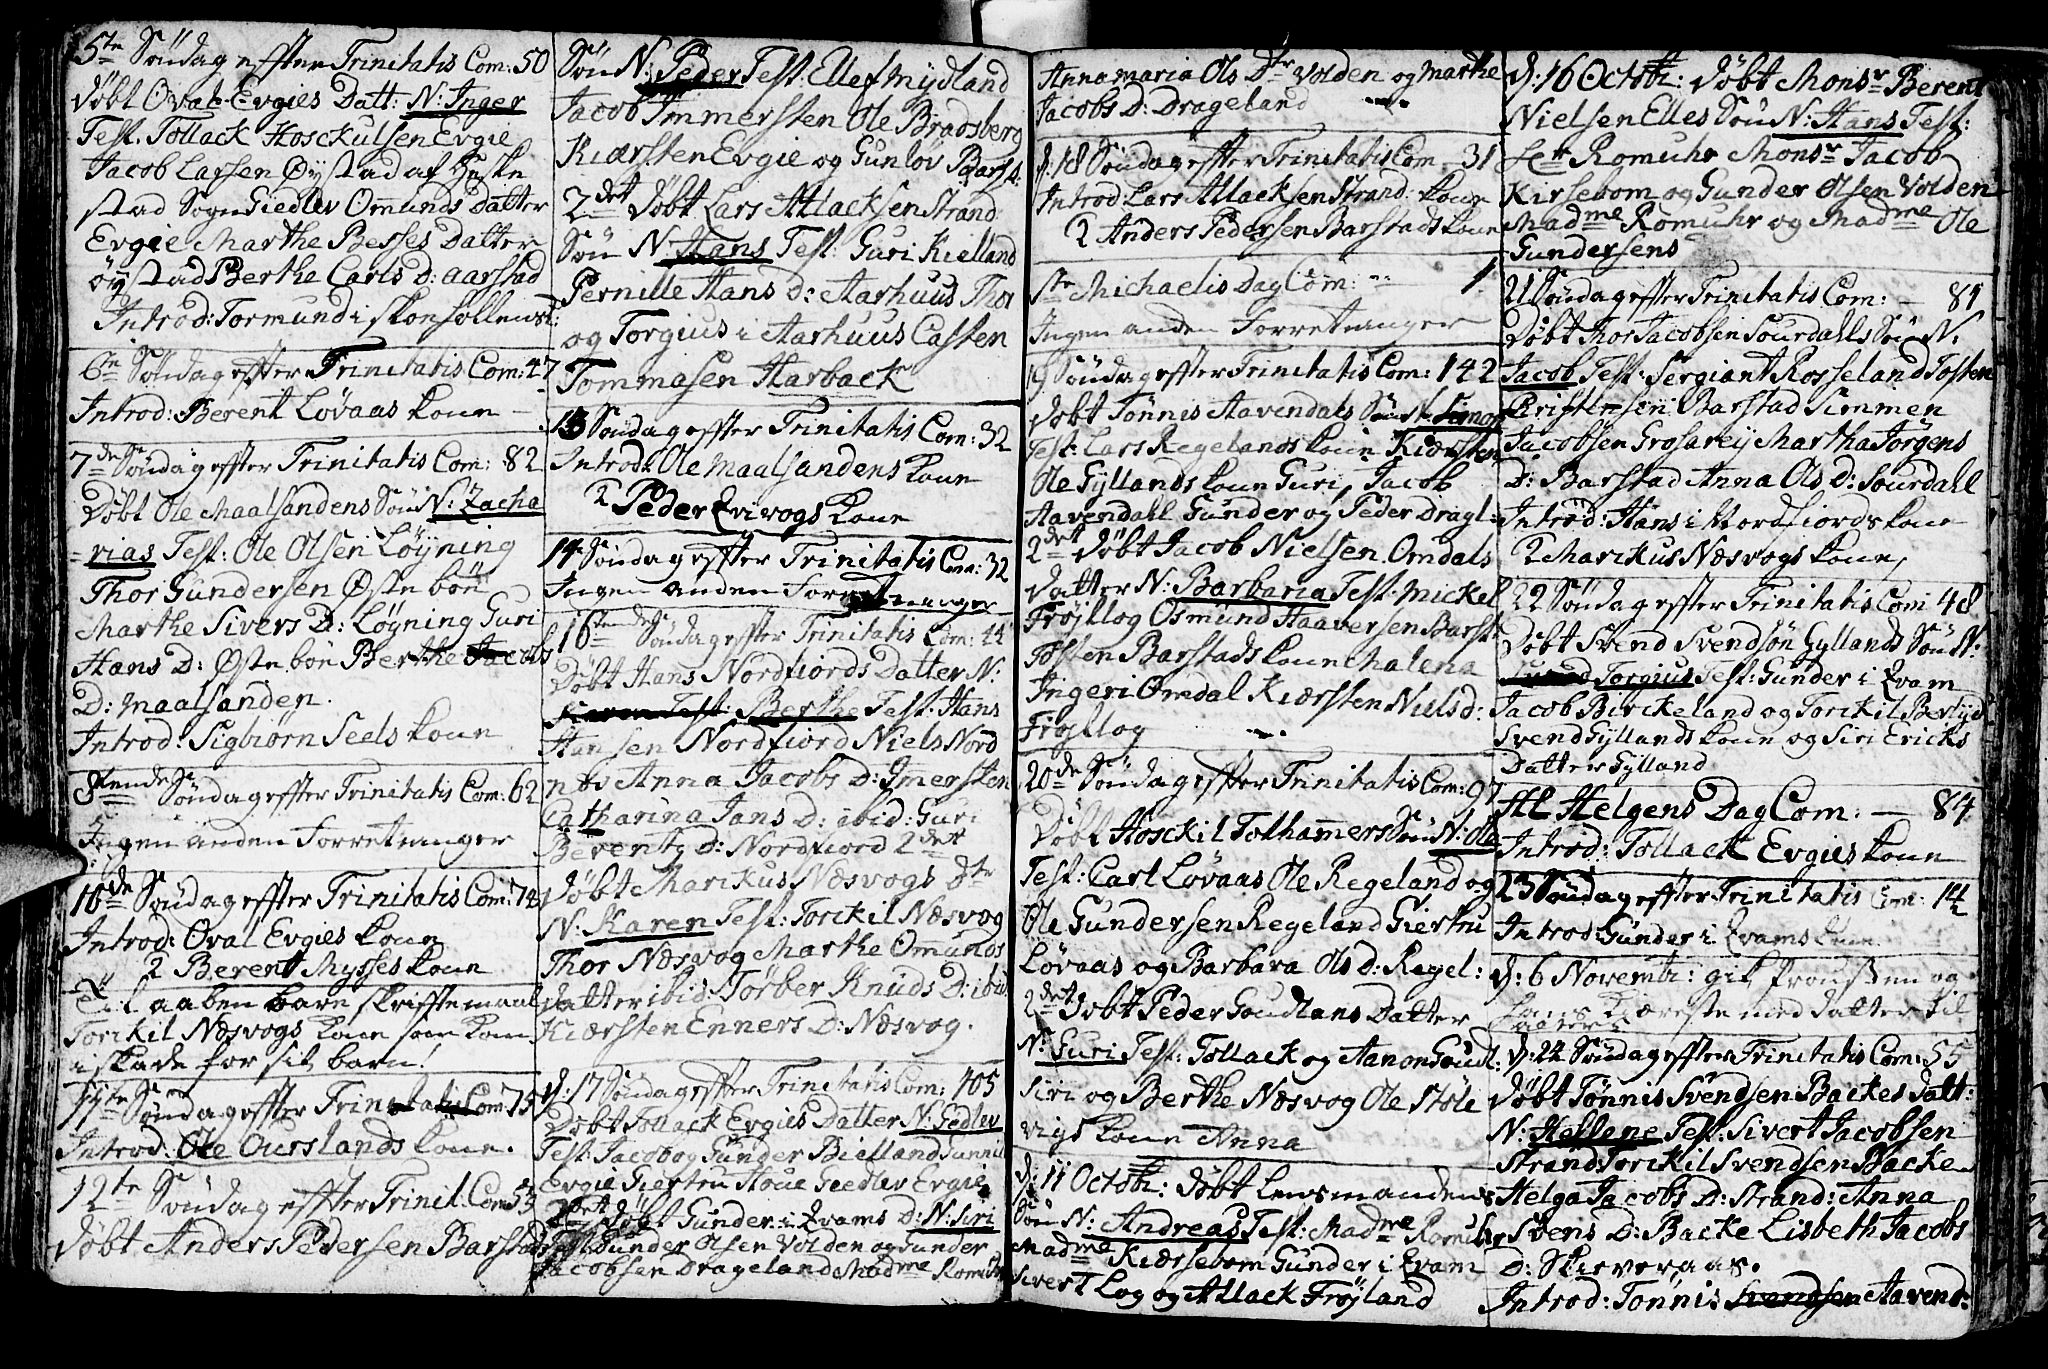 5te Søndag effter Trinitatis Com: 50
Døbt Oval Evgies Datt: N: Inger
Test. Tollack Hosckulsen Evgie
Jacob Larsen Øystad af Heske
stad Sogn Giedlev Omunds Datter
Evgie Marthe Besses Datter
øystad Berthe Carls D: Aarstad
Introd: Tormund i Skonfollens K:
6te Søndag effter Trinitatis Com: 47
Introd: Berent Løvaas Kone
7de Søndag effter Trinitatis Com: 82
Døbt Ole Maalsandens Søn N: Zacha
=rias Test: Ole Olsen Løyning
Thor Gundersen Østebøn
Marthe Sivers D: Løyning Guri
Hans D: Østebøn Berthe Jacobs
D: Maalsanden.
Introd: Sigbiørn Seels Kone
8tende Søndag effter Trinitatis Com: 62
Ingen anden Forretninger
10de Søndag effter Trinitatis Com: 74
Introd: Oval Evgies Kone
2 Berent Mysses Kone
Til aabenbare skrifftemaal
Torckil Næsvogs Kone som kom
i skade for sit barn!
11te Søndag effter Trinitatis Com: 75
Introd: Ole Ousslands Kone.
12te Søndag effter Trinit. Com 53
Døbt Anders Pedersen Barstads
Søn N: Peder Test: Ellef Mydland
Jacob Immersten Ole Bradsberg
Kiærsten Evgie og Gunløv Barst:
2det Døbt Lars Atlacksen Strand:
Søn N: Hans Test: Guri Kielland
Pernille Hans D: Aarhuus Thor
og Torgius i Aarhuus Casten
Tommasen Harback
13 Søndag effter Trinitatis Com: 32
Introd: Ole Maalsandens Kone
2 Peder Evivogs Kone
14 Søndag effter Trinitatis Com: 32
Ingen anden Forretninger
16tende Søndag effter Trinitatis Com: 44
Døbt Hans Nordfiords Datter N:
Karen Test: Berthe Test: Hans
Hansen Nordfiord Niels Nord
nbø Anna Jacobs D: Imersten
Catharina Jans D: ibid: Guri
Berents D: Nordfiord 2det
Døbt Marikus Næsvogs Dtr
N: Karen Test: Torckil Næsvog
Thor Næsvog Marthe Omunds
Datter ibid. Tørber Knuds D: ibid.
Kiærsten Enners D: Næsvog.
d: 17 Søndag effter Trinitatis Com: 105
Døbt Tollack Evgies Datter N: Gedlev
Test: Jacob og Gunder Bielland Gunnil
Evgie Giertru Houe Geedlev Evgie
2det Døbt Gunder i Qvams D: N: Siri
Test: Gunder Olsen Volden og Gunder
Jacobsen Drageland Madme Romuhr
Anna Maria Ols Dtr Volden og Marthe
Jacobs D: Drageland
d: 18 Søndag effter Trinitatis Com: 31
Introd Lars Atlacksen Strand: Kone
2 Anders Pedersen Barstads Kone
Ste Michaelis Dag Com: 1
Ingen anden Forretninger
19 Søndag effter Trinitatis Com: 142
Døbt Tønnis Aavendals Søn N: Simon
Test: Lars Regelands Kone Kiersten
Ole Gyllands Kone Guri, Jacob
Aavendall Gunder og Peder Dragl=
2det Døbt Jacob Nielsen Omdals
Datter N: Barbaria Test: Mickel
Frøjtlog Osmund Haaversen Barst:
Tosten Barstads Kone Malena
Ingeri Omdal Kiærsten Niels d:
Frøjtlog
20de Søndag effter Trinitatis Com: 97
Døbt Hosckil Tolhammers Søn N: Ole
Test: Carl Løvaas Ole Regeland og
Ole Gundersen Regeland Giertru
Løvaas og Barbara Ols d: Regel:
2det Døbt Peder Goudlans Datter
N: Guri Test: Tollack og Aanon Goudl:
Siri og Berthe Næsvog Ole Støle
vigs Kone Anna
d: 11 Octobr: Døbt Lensmandens
Søn N: Andreas Test: Madme Romuhr
Madme Kiærsebom Gunder i Qvam
Sivert Log og Atlack Frøjland
d: 16 Octobr: Døbt Monsr Berent
Nielsen Elles Søn N: Hans Test:
Romuhr Monsr Jacob
Kirsebom og Gunder Olsen Volden
Madme Romuhr og Madme Ole
Gundersens
21 Søndag effter Trinitatis Com: — 81
Døbt Thor Jacobsen Sourdalls Søn N:
Jacob Test: Sergiant Rosseland Tosten
Christensen Barstad Simmen
Jacobsen Grosareij Martha Jørgens
D: Barstad Anna Ols D: Sourdall
Introd: Hans i Nordfiords Kone
2 Marikus Næsvogs Kone,
22 Søndag effter Trinitatis Com 48
Døbt Svend Svendsøn Gyllands Søn N:
Torgius Test: Gunder i Qvam
Jacob Birckeland og Torckil Berlyd
Svend Gyllands Kone og Siri Ericks
Datter Gylland
All Helgens Dag Com: — 84
Introd: Tollack Evgies Kone
23 Søndag effter Trinitatis Com: 14
Introd: Gunder i Qvams Kone
d: 6 Novembr: gik Provsten og
hans Kiæreste med datter til
alters
d: 24 Søndag effter Trinitatis Com: 55
Døbt Tønnis Svendsen Backes Datt:
N: Hellene Test: Sivert Jacobsen
Strand Torckil Svendsen Backe
Helga Jacobs D: Strand: Anna
Svens D: Backe Lisbeth Jacobs
D: Skieveraas.
Introd: Tønnis Svendsen Aavend: